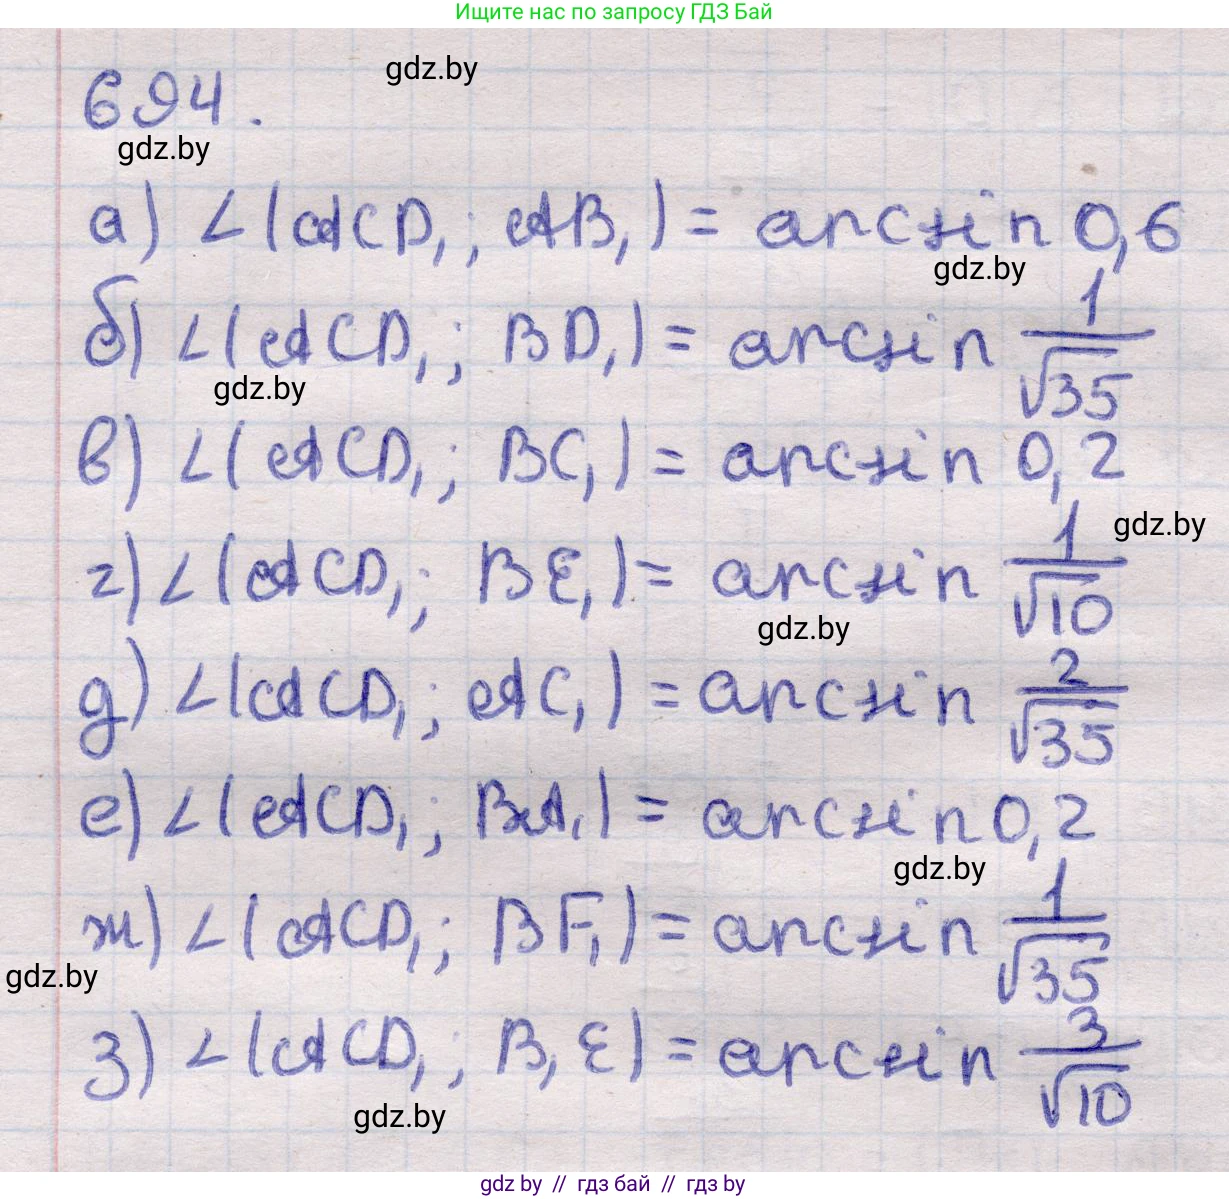 Ищите нас по запросу ГДЗ Бай
gdz.by
694.
gdz.by
а) ∠(ACD₁; AB₁) = arcsin 0,6
gdz.by
б) ∠(ACD₁; BD₁) = arcsin 1/√35
gdz.by
в) ∠(ACD₁; BC₁) = arcsin 0,2
gdz.by
г) ∠(ACD₁; BE₁) = arcsin 1/√10
gdz.by
д) ∠(ACD₁; AC₁) = arcsin 2/√35
е) ∠(ACD₁; BA₁) = arcsin 0,2
gdz.by
ж) ∠(ACD₁; BF₁) = arcsin 1/√35
gdz.by
з) ∠(ACD₁; B₁E) = arcsin 3/√10
gdz.by
gdz by // гдз бай // гдз by